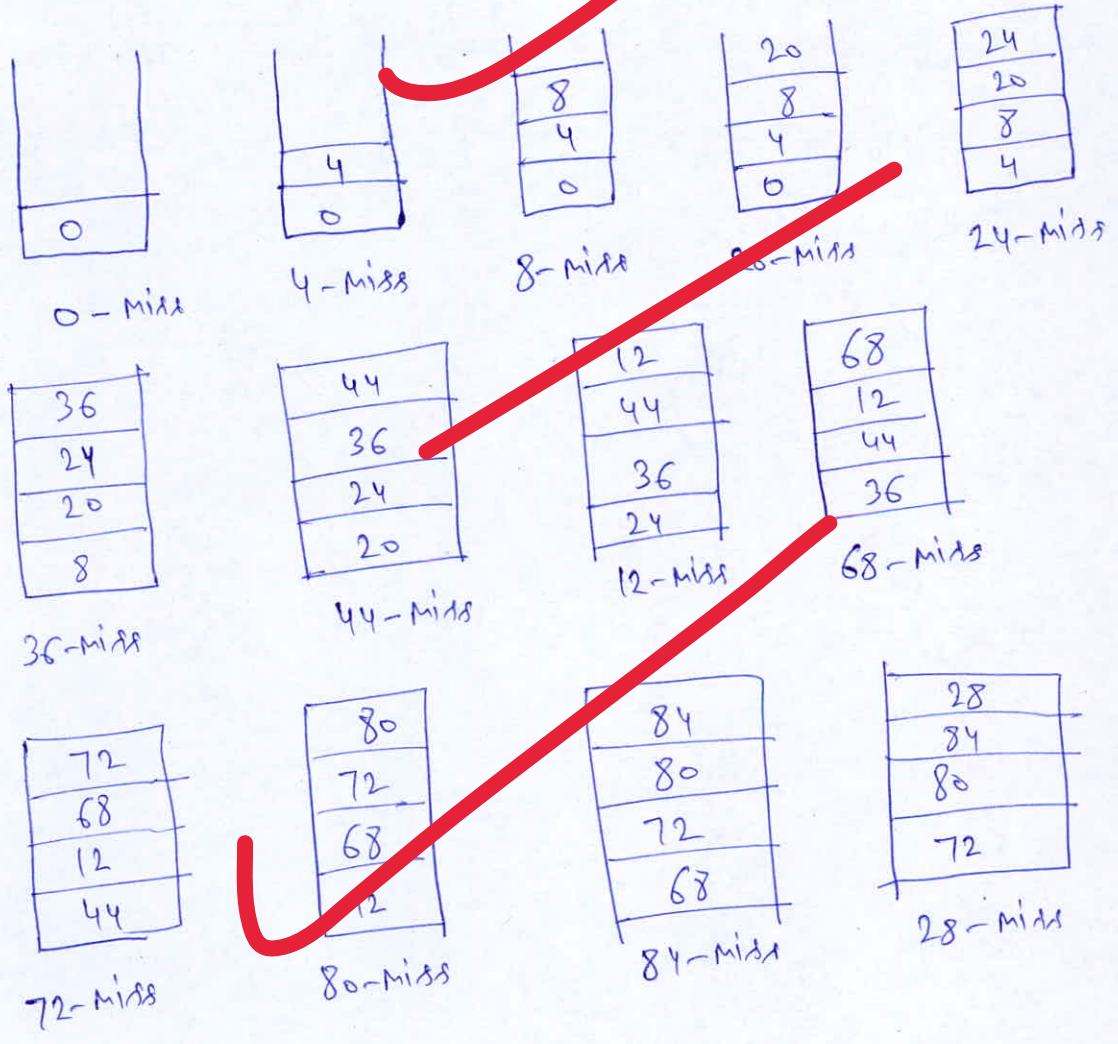 0
0 - Miss
4
0
4 - Miss
8
4
0
8 - Miss
20
8
4
0
20 - Miss
24
20
8
4
24 - Miss
36
24
20
8
36 - Miss
44
36
24
20
44 - Miss
12
44
36
24
12 - Miss
68
12
44
36
68 - Miss
72
68
12
44
72 - Miss
80
72
68
12
80 - Miss
84
80
72
68
84 - Miss
28
84
80
72
28 - Miss